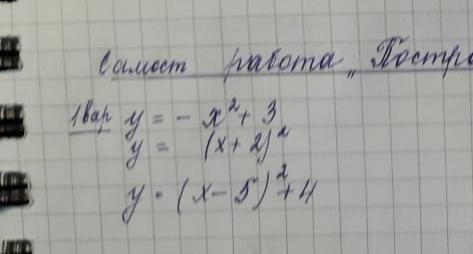 Самост работа „Постро
1 Вар y = - x² + 3
y = (x + 2)²
y = (x - 5)² + 4